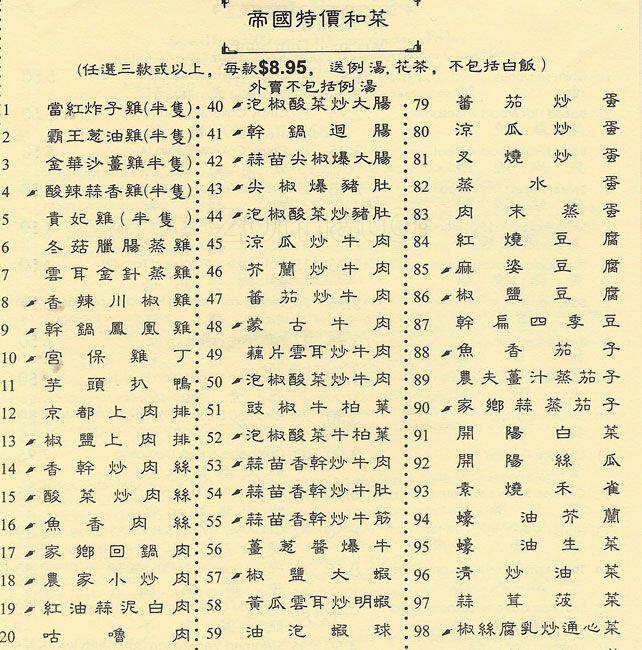 帝國特價和菜
(任選三款或以上，每款$8.95，送例湯,花茶，不包括白飯)
外賣不包括例湯
1 當紅炸子雞(半隻)
2 霸王蔥油雞(半隻)
3 金華沙薑雞(半隻)
4 酸辣蒜香雞(半隻)
5 貴妃雞(半隻)
6 冬菇臘腸蒸雞
7 雲耳金針蒸雞
8 香辣川椒雞
9 幹鍋鳳凰雞
10 宮保雞丁
11 芋頭扒鴨
12 京都上肉排
13 椒鹽上肉排
14 香幹炒肉絲
15 酸菜炒肉絲
16 魚香肉絲
17 家鄉回鍋肉
18 農家小炒肉
19 紅油蒜泥白肉
20 咕嚕肉
40 泡椒酸菜炒大腸
41 幹鍋迴腸
42 蒜苗尖椒爆大腸
43 尖椒爆豬肚
44 泡椒酸菜炒豬肚
45 涼瓜炒牛肉
46 芥蘭炒牛肉
47 蕃茄炒牛肉
48 蒙古牛肉
49 藕片雲耳炒牛肉
50 泡椒酸菜炒牛肉
51 豉椒牛柏葉
52 泡椒酸菜牛柏葉
53 蒜苗香幹炒牛肉
54 蒜苗香幹炒牛肚
55 蒜苗香幹炒牛筋
56 薑蔥醬爆牛
57 椒鹽大蝦
58 黃瓜雲耳炒明蝦
59 油泡蝦球
79 蕃茄炒蛋
80 涼瓜炒蛋
81 叉燒炒蛋
82 蒸水蛋
83 肉末蒸蛋
84 紅燒豆腐
85 麻婆豆腐
86 椒鹽豆腐
87 幹扁四季豆
88 魚香茄子
89 農夫薑汁蒸茄子
90 家鄉蒜蒸茄子
91 開陽白菜
92 開陽絲瓜
93 素燒禾雀
94 蠔油芥蘭
95 蠔油生菜
96 清炒油菜
97 蒜茸菠菜
98 椒絲腐乳炒通心菜